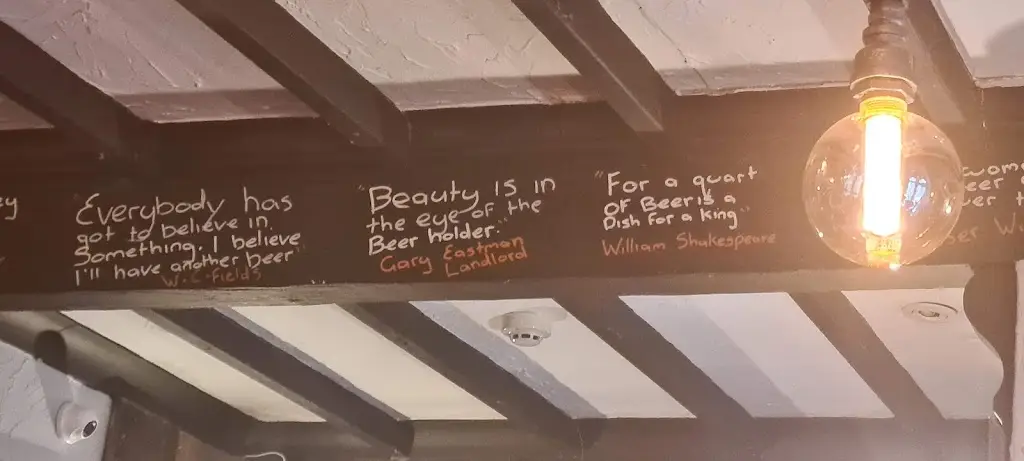 ey
"Everybody has
got to believe in
Something. I believe
I'll have another beer"
W.C. Fields
"Beauty is in
the eye of the
Beer holder."
Gary Eastman
Landlord
"For a quart
of Beer is a
Dish for a king"
William Shakespeare